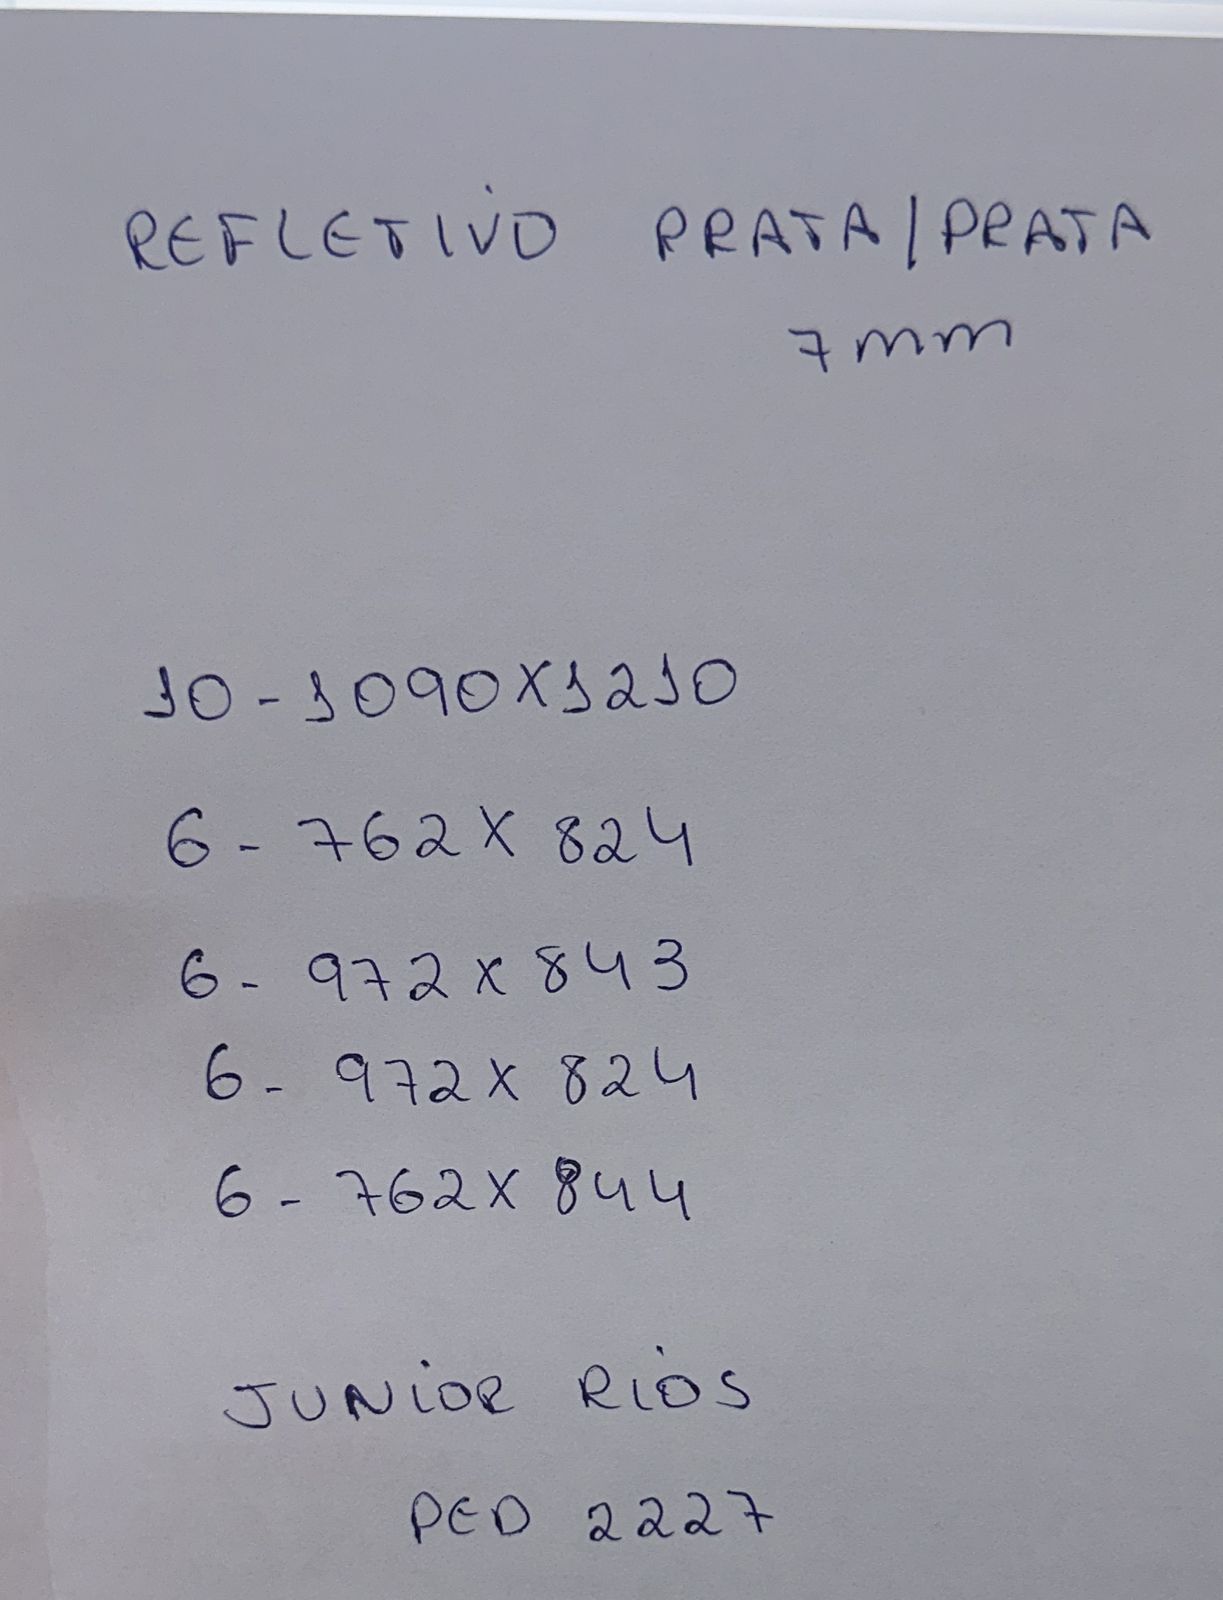 REFLETIVO PRATA/PRATA
7mm
10-1090X1210
6- 762X 824
6- 972x 843
6- 972x 824
6- 762x 844
JUNIOR RIOS
PED 2227